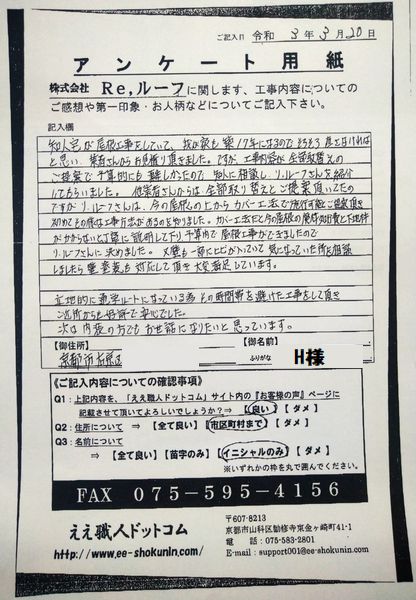 ご記入日 令和 3年 3月 20日
アンケート用紙
株式会社 Re,ルーフに関します、工事内容についての
ご感想や第一印象・お人柄などについてご記入下さい。
記入欄
知人宅が屋根工事をしていて、我が家も築17年になるのでそろそろ
と思い 業者さんからお見積り頂きました。ですが工事内容が全部取替えの
ご提案で予算的にも難しかったので 知人に相談しリ・ルーフさんを紹介
してもらいました。他業者さんからは全部取り替えとご提案頂いてたの
ですが リ・ルーフさんは、今の屋根の上から カバー工法で施行可能とご提案頂き
初めてその様な工事方法があるのを知りました。カバー工法だと今の屋根の廃材処分費と下地材
がかからないと丁寧に説明して下り予算内で屋根工事ができましたので
リ・ルーフさんに決めました。又壁も一部にヒビが入っていて気になっていた所も相談
しましたら 対応して頂き大変満足しています。
立地的に通学ルートになっている為 その時間帯を避けた工事をして頂き
ご近所からも好評で安心でした。
次は内装の方でもお世話になりたいと思っています。
【御住所】 【御名前】
京都市右京区 ふりがな H様
《ご記入内容についての確認事項》
Q1：上記内容を、「ええ職人ドットコム」サイト内の『お客様の声』ページに
記載させて頂いてよろしいでしょうか？⇒【良い】【ダメ】
Q2：住所について ⇒【全て良い】【市区町村まで】【ダメ】
Q3：名前について
⇒【全て良い】【苗字のみ】【イニシャルのみ】【ダメ】
※いずれかの枠を丸で囲んでください。
FAX 075-595-4156
ええ職人ドットコム
http://www.ee-shokunin.com/
〒607-8213
京都市山科区勧修寺東金ヶ崎町41-1
電話：075-583-2801
E-mail：support001@ee-shokunin.com